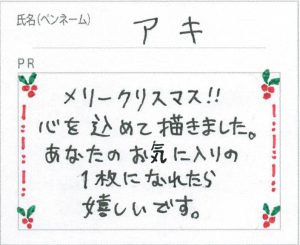 氏名(ペンネーム)
アキ
PR
メリークリスマス!!
心を込めて描きました。
あなたのお気に入りの
1枚になれたら
嬉しいです。